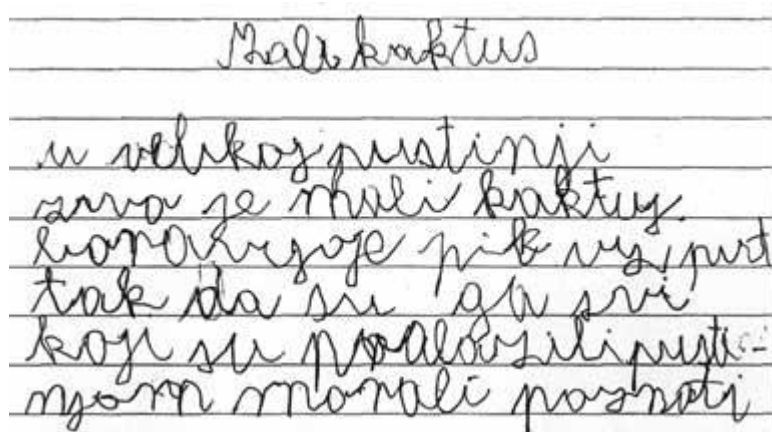 Mali kaktus
u velikoj pustinji
je mali kaktus
tak da su ga svi
koji su prolazili pusti-
njom morali poznati